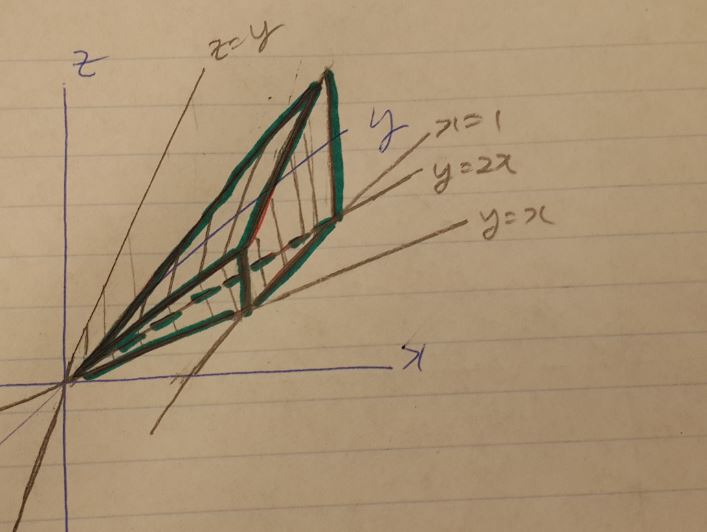 z=y
z
y
x=1
y=2x
y=x
x